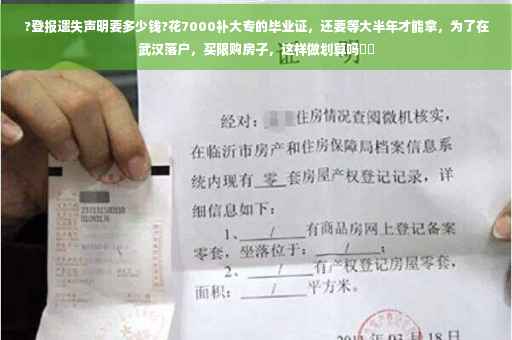 ?登报遗失声明要多少钱?花7000补大专的毕业证，还要等大半年才能拿，为了在
武汉落户，买限购房子，这样做划算吗
证 明
经对：住房情况查阅微机核实，
在临沂市房产和住房保障局档案信息系
统内现有 零 套房屋产权登记记录，详
细信息如下：
1、 / 有商品房网上登记备案
零套，坐落位于： / ；
2、 / 有产权登记房屋零套，
面积： / 平方米。
月18日